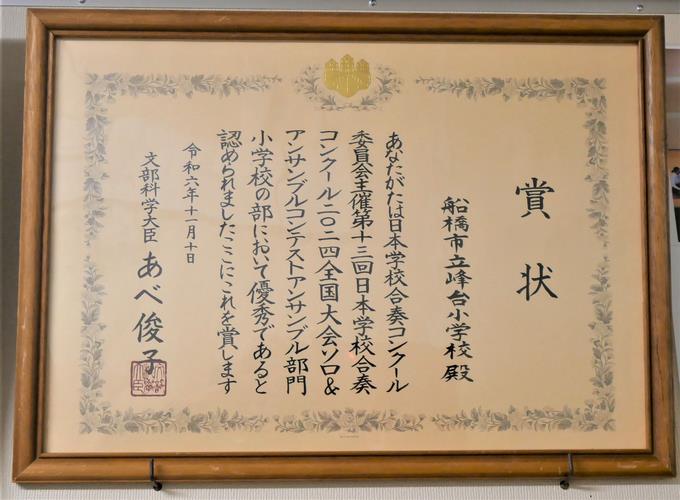 賞状
船橋市立峰台小学校殿
あなたがたは日本学校合奏コンクール
委員会主催第十三回日本学校合奏
コンクール二〇二四全国大会ソロ&
アンサンブルコンテストアンサンブル部門
小学校の部において優秀であると
認められましたここにこれを賞します
令和六年十一月十日
文部科学大臣 あべ俊子